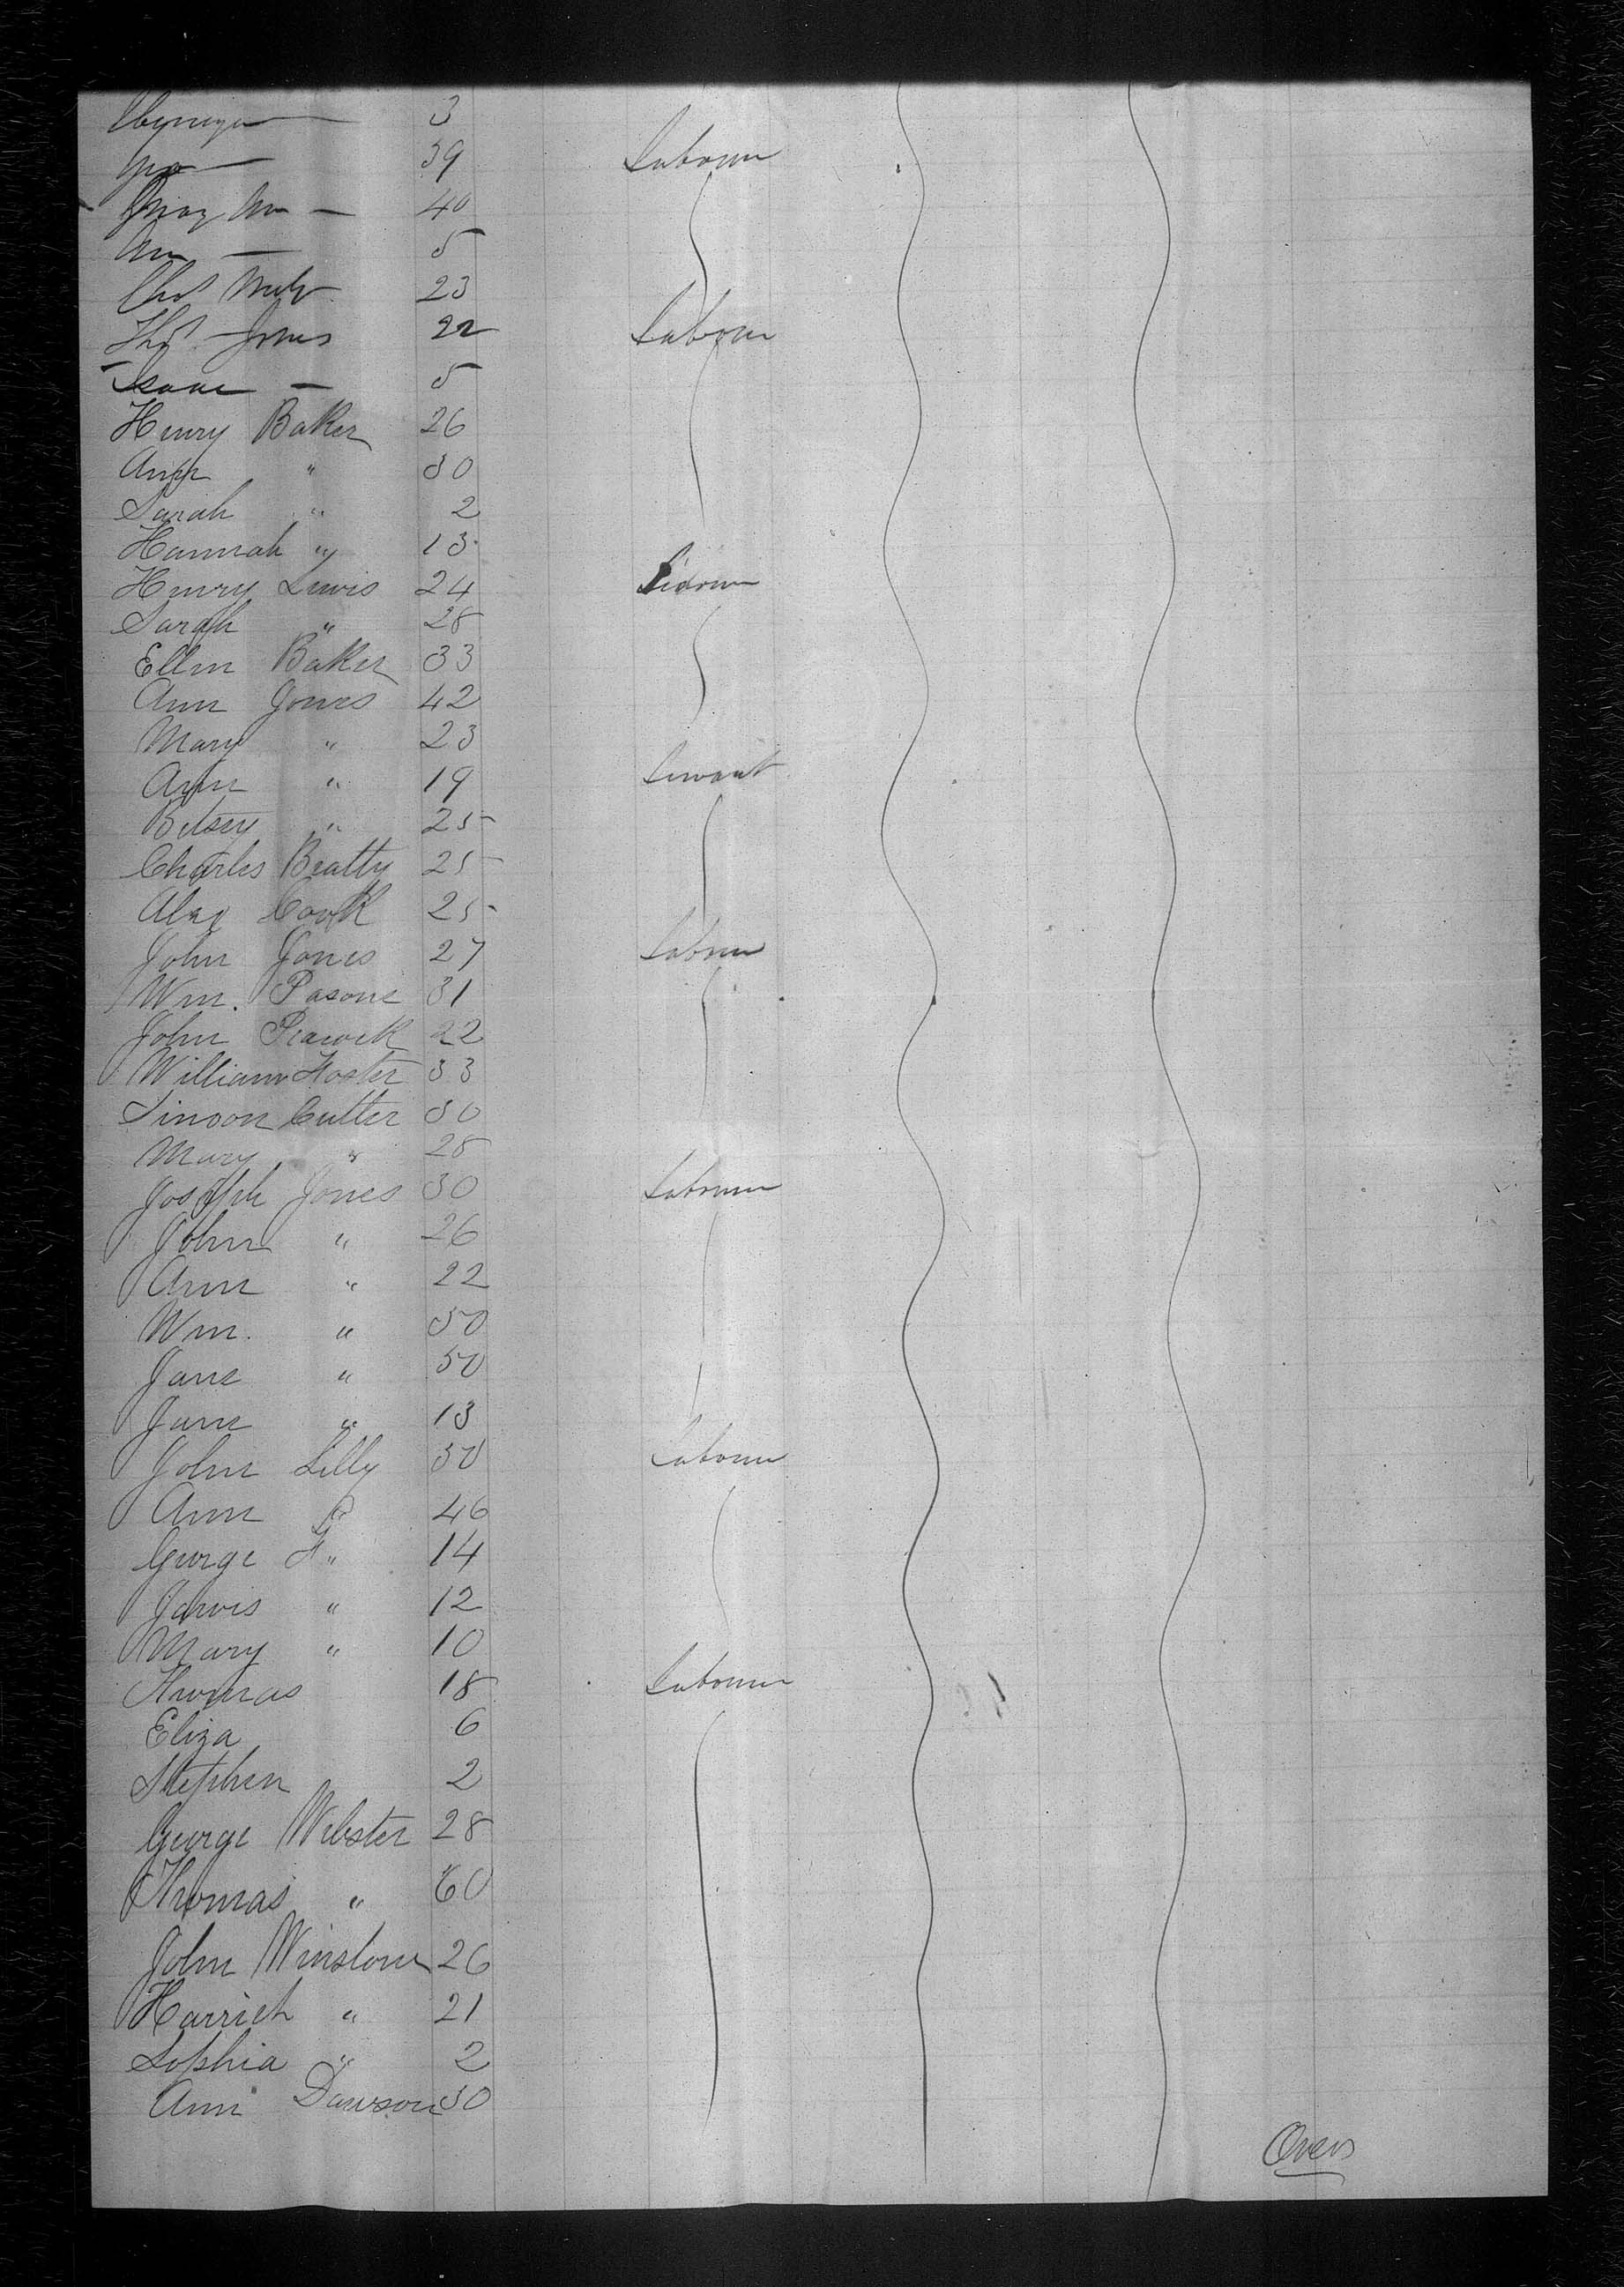 3
39 Labourer
40
Ann — 5
Chas 23
Thos Jones 22 Labourer
Isaac — 5
Henry Baker 26
Ann " 30
Sarah " 2
Hannah " 13
Henry Lewis 24
Sarah " 28
Ellen Baker 33
Ann Jones 42
Mary " 23
Ann " 19 Servant
Betsey " 25
Charles Beatty 25
Alex Cook 25
John Jones 27 Labourer
Wm. Pasons 31
John 22
William Foster 33
Simson Cutter 30
Mary " 28
Joseph Jones 30 Labourer
John " 26
Ann " 22
Wm. " 50
Jane " 50
Jane " 13
John Lilly 50 Labourer
Ann " 46
George H " 14
Jarvis " 12
Mary " 10
Thomas 18 Labourer
Eliza 6
Stephen 2
George Webster 28
Thomas " 60
John Winslow 26
Harriet " 21
Sophia " 2
Ann Dawson 30
Over